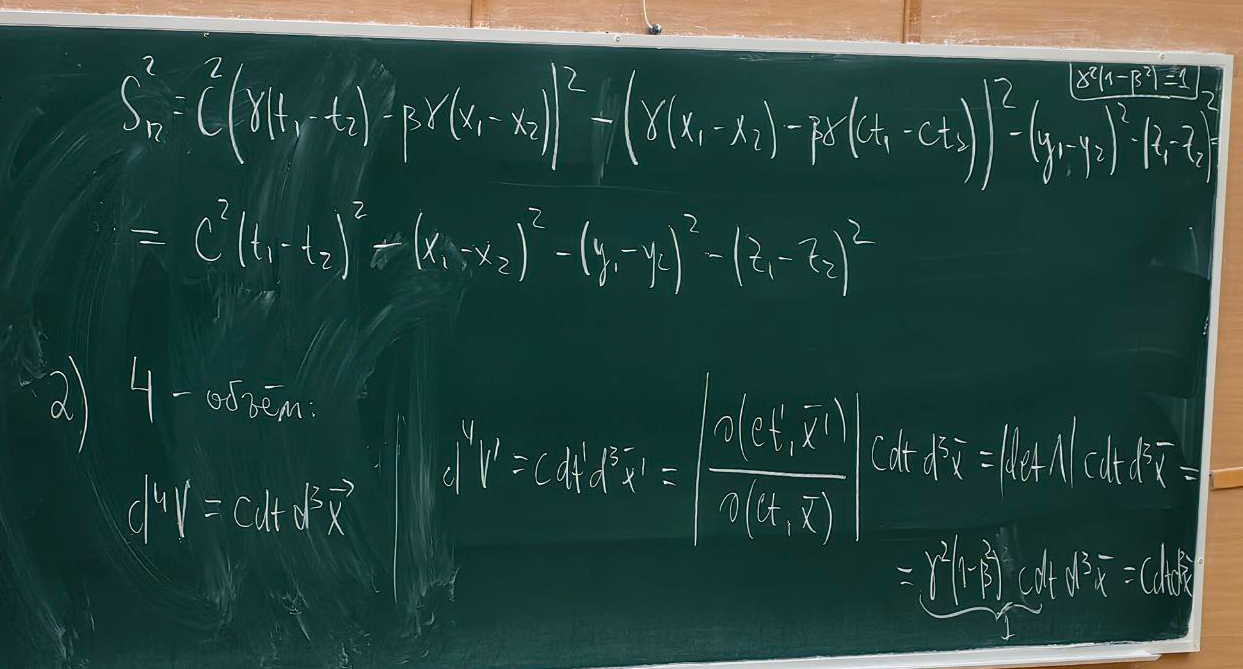 γ²(1-β²)=1
S₁₂² = C²(γ(t₁-t₂) - βγ(x₁-x₂))² - (γ(x₁-x₂) - βγ(ct₁-ct₂))² - (y₁-y₂)² - (z₁-z₂)² =
= C²(t₁-t₂)² - (x₁-x₂)² - (y₁-y₂)² - (z₁-z₂)²
2) 4-объём:
d⁴V = cdt d³x⃗
d⁴V' = cdt' d³x̄' = |∂(ct', x̄')/∂(ct, x̄)| cdt d³x̄ = |det Λ| cdt d³x̄ =
= γ²(1-β²) cdt d³x̄ = cdt d³x̄
1